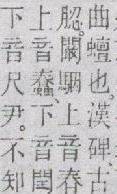 曲蟺也。漢碑、古
䏰。闞駰上音春
上音蠢、下音閏
下音尺尹。不知